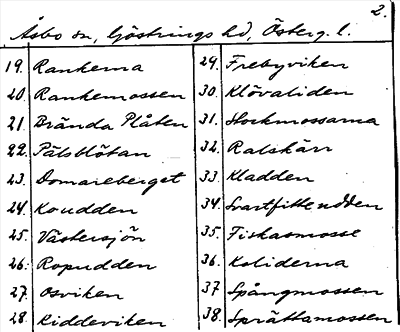 2.
Åsbo sn, Göstrings hd, Österg. l.
19. Rankerna
20. Rankemossen
21. Brända Plåten
22. Pälsblötan
23. Domareberget
24. Koudden
25. Västersjön
26. Ropudden
27. Osviken
28. Kiddeviken
29. Frebyviken
30. Klövaliden
31. Hockmossarna
32. Ralskärr
33. Kladden
34. Svartfitteudden
35. Fiskasmosse
36. Koliderna
37 Spångmossen
38. Sprättamossen